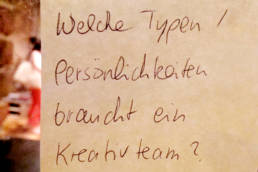 Welche Typen /
Persönlichkeiten
braucht ein
Kreativteam?